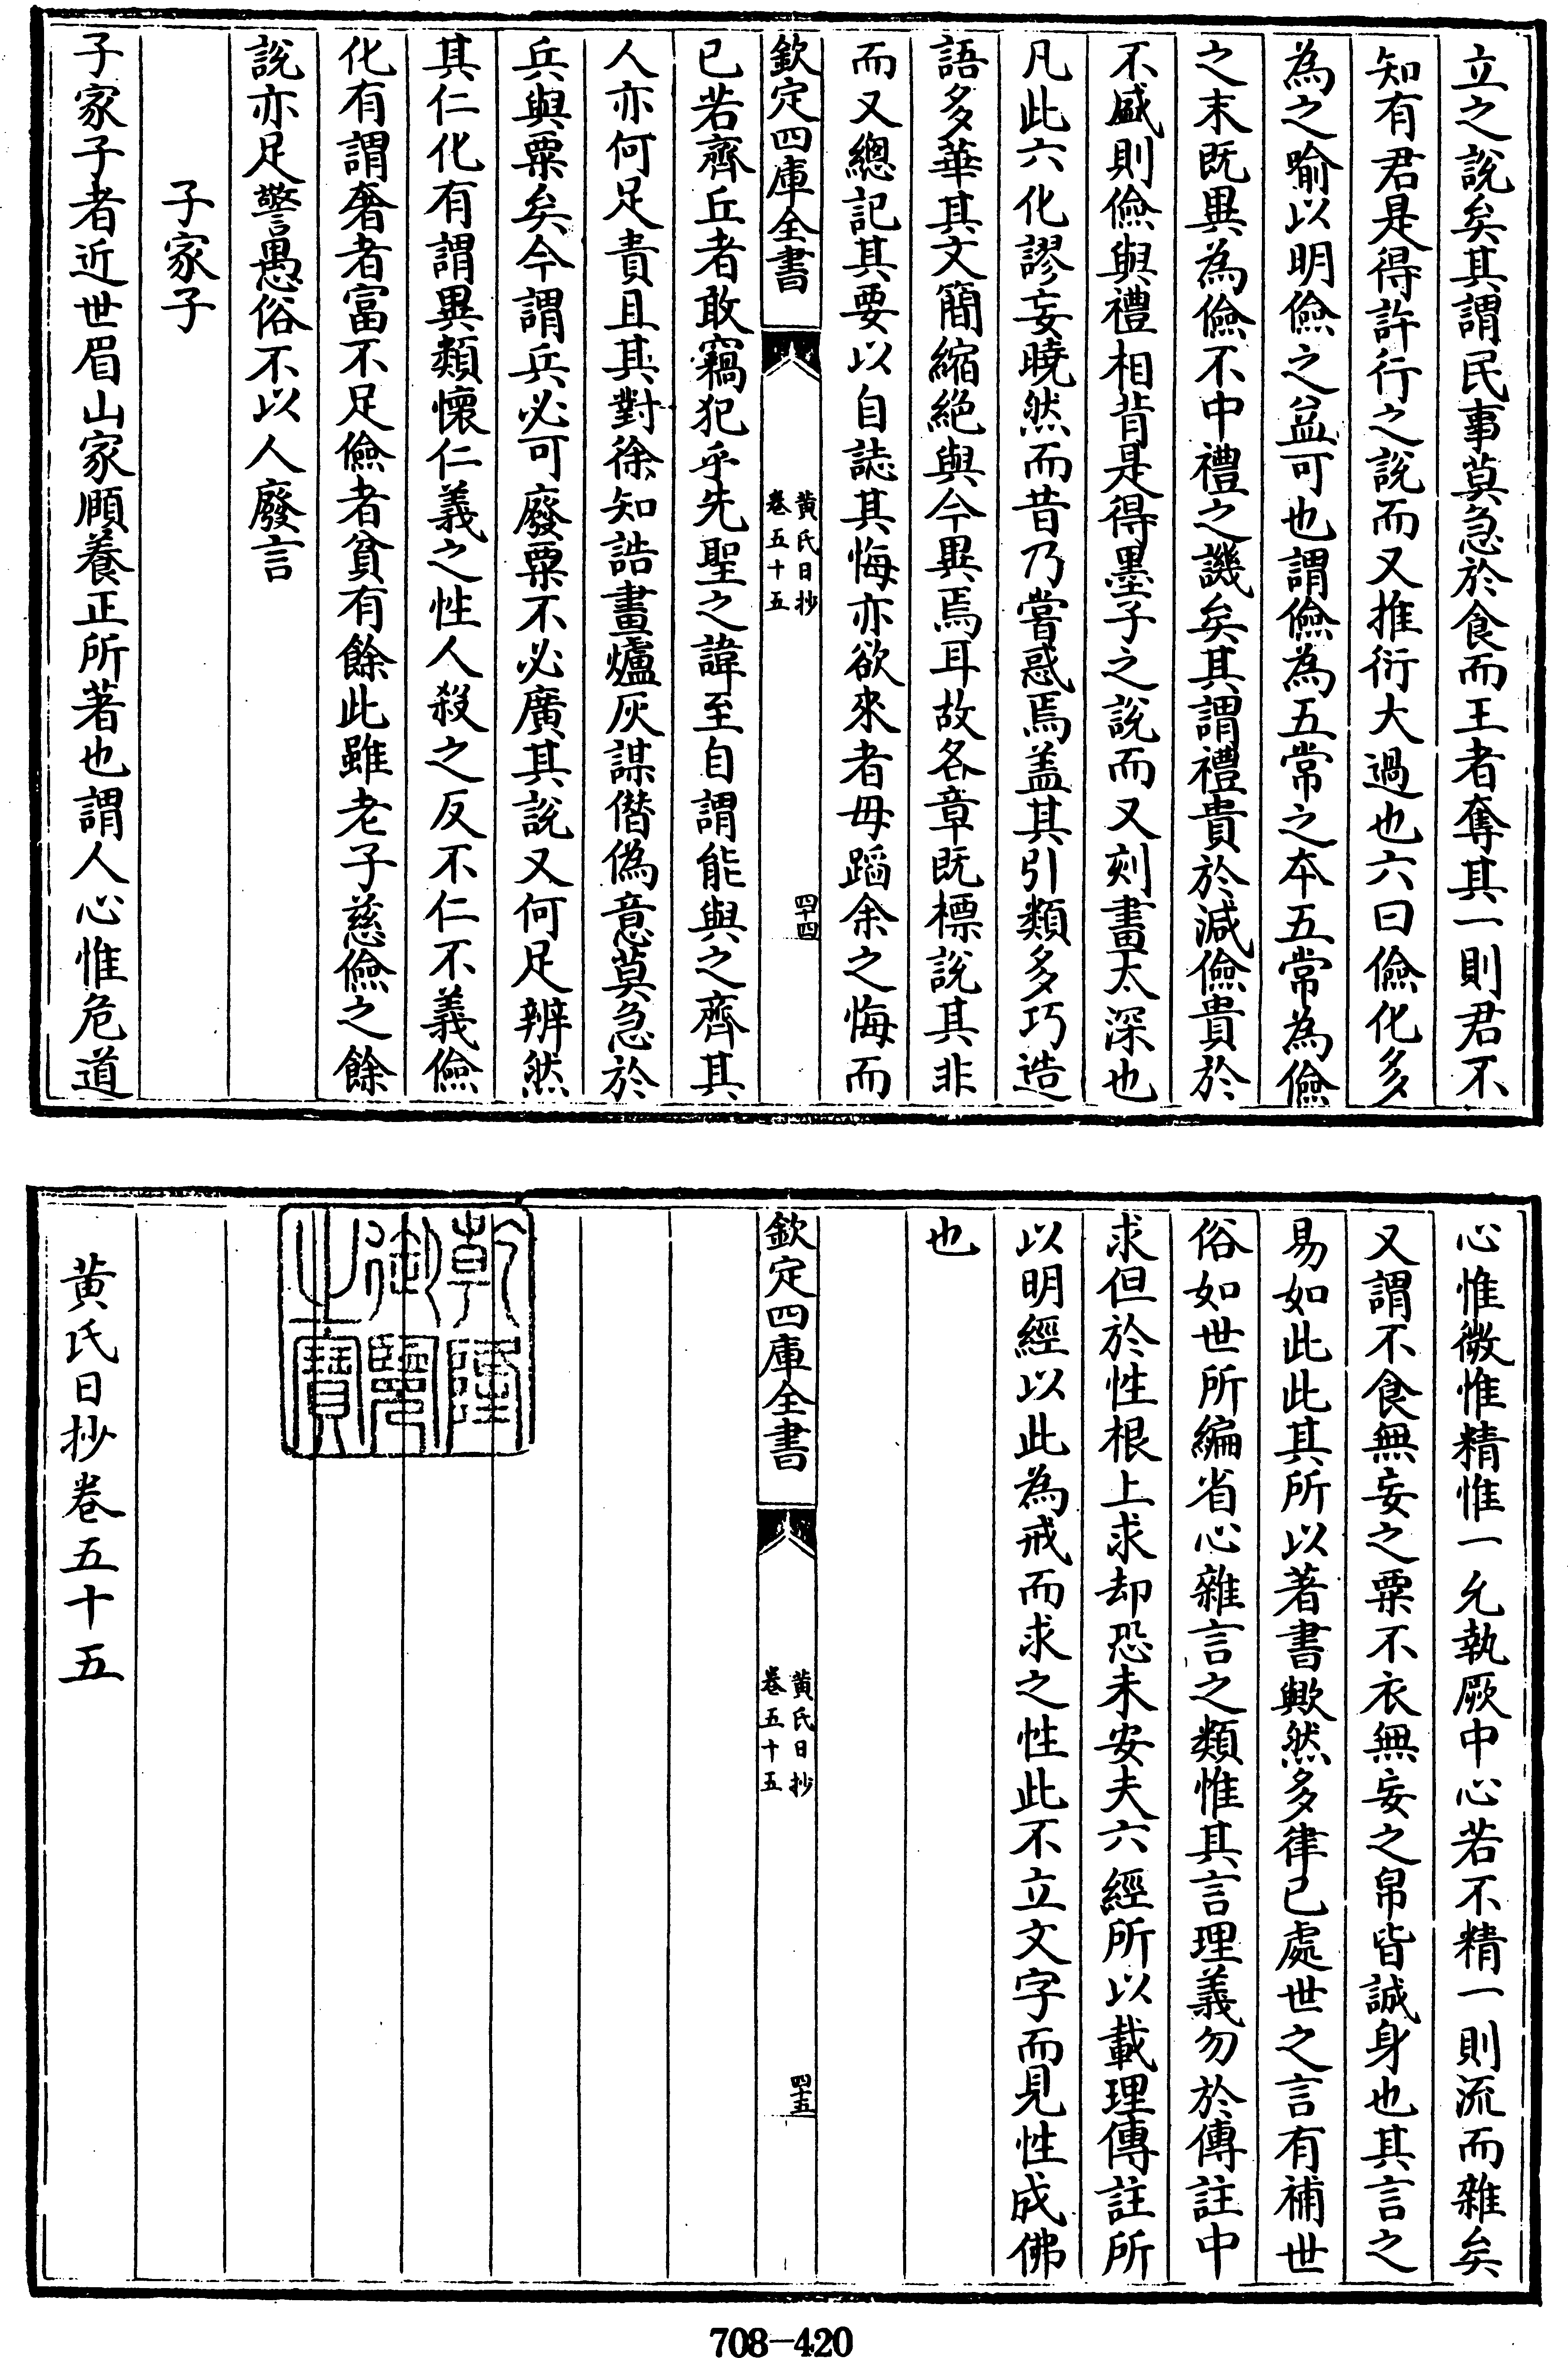 立之說矣其謂民事莫急於食而王者奪其一則君不
知有君是得許行之說而又推衍大過也六曰儉化多
為之喻以明儉之益可也謂儉為五常之本五常為儉
之末既異為儉不中禮之譏矣其謂禮貴於減儉貴於
不盛則儉與禮相背是得墨子之說而又刻畫太深也
凡此六化謬妄曉然而昔乃嘗惑焉盖其引類多巧造
語多華其文簡縮絕與今異焉耳故各章既標說其非
而又總記其要以自誌其悔亦欲來者毋蹈余之悔而
欽定四庫全書
黄氏日抄
卷五十五
四十四
已若齊丘者敢竊犯乎先聖之諱至自謂能與之齊其
人亦何足責且其對徐知誥畫爐灰謀僭偽意莫急於
兵與粟矣今謂兵必可廢粟不必廣其說又何足辨然
其仁化有謂異類懷仁義之性人殺之反不仁不義儉
化有謂奢者富不足儉者貧有餘此雖老子慈儉之餘
說亦足警愚俗不以人廢言
子家子
子家子者近世眉山家頥養正所著也謂人心惟危道
心惟微惟精惟一允執厥中心若不精一則流而雜矣
又謂不食無妄之粟不衣無妄之帛皆誠身也其言之
易如此此其所以著書歟然多律已處世之言有補世
俗如世所編省心雜言之類惟其言理義勿於傳註中
求但於性根上求却恐未安夫六經所以載理傳註所
以明經以此為戒而求之性此不立文字而見性成佛
也
欽定四庫全書
黄氏日抄
卷五十五
四十五
乾隆
御覽
之寶
黄氏日抄卷五十五
708-420